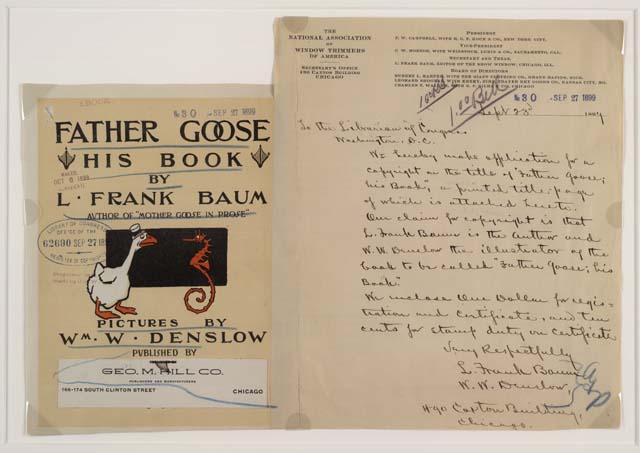 №30 SEP 27 1899
FATHER GOOSE
HIS BOOK
BY
L. FRANK BAUM
AUTHOR OF "MOTHER GOOSE IN PROSE"
OCT 6 1899
LIBRARY OF CONGRESS
OFFICE OF THE
62690 SEP 27 1899
REGISTER OF COPYRIGHTS
PICTURES BY
WM. W. DENSLOW
PUBLISHED BY
GEO. M. HILL CO.
PUBLISHERS AND MANUFACTURERS
166-174 SOUTH CLINTON STREET CHICAGO
THE
NATIONAL ASSOCIATION
OF
WINDOW TRIMMERS
OF AMERICA
SECRETARY'S OFFICE
CAXTON BUILDING
CHICAGO
PRESIDENT
VICE-PRESIDENT
SECRETARY AND TREAS.
L. FRANK BAUM, EDITOR OF THE SHOW WINDOW, CHICAGO, ILL.
BOARD OF DIRECTORS
1.00 Bill
№30 SEP 27 1899
Sept 23d
To the Librarian of Congress
Washington, D.C.
We hereby make application for a
copyright on the title of "Father Goose;
his Book," a printed title-page
of which is attached hereto.
Our claim for copyright is that
L. Frank Baum is the author and
W. W. Denslow the illustrator of the
book to be called "Father Goose; his
Book."
We enclose One Dollar for regis-
tration and certificate, and ten
cents for stamp duty on certificate
Very Respectfully
L. Frank Baum
W. W. Denslow,
Caxton Building,
Chicago.